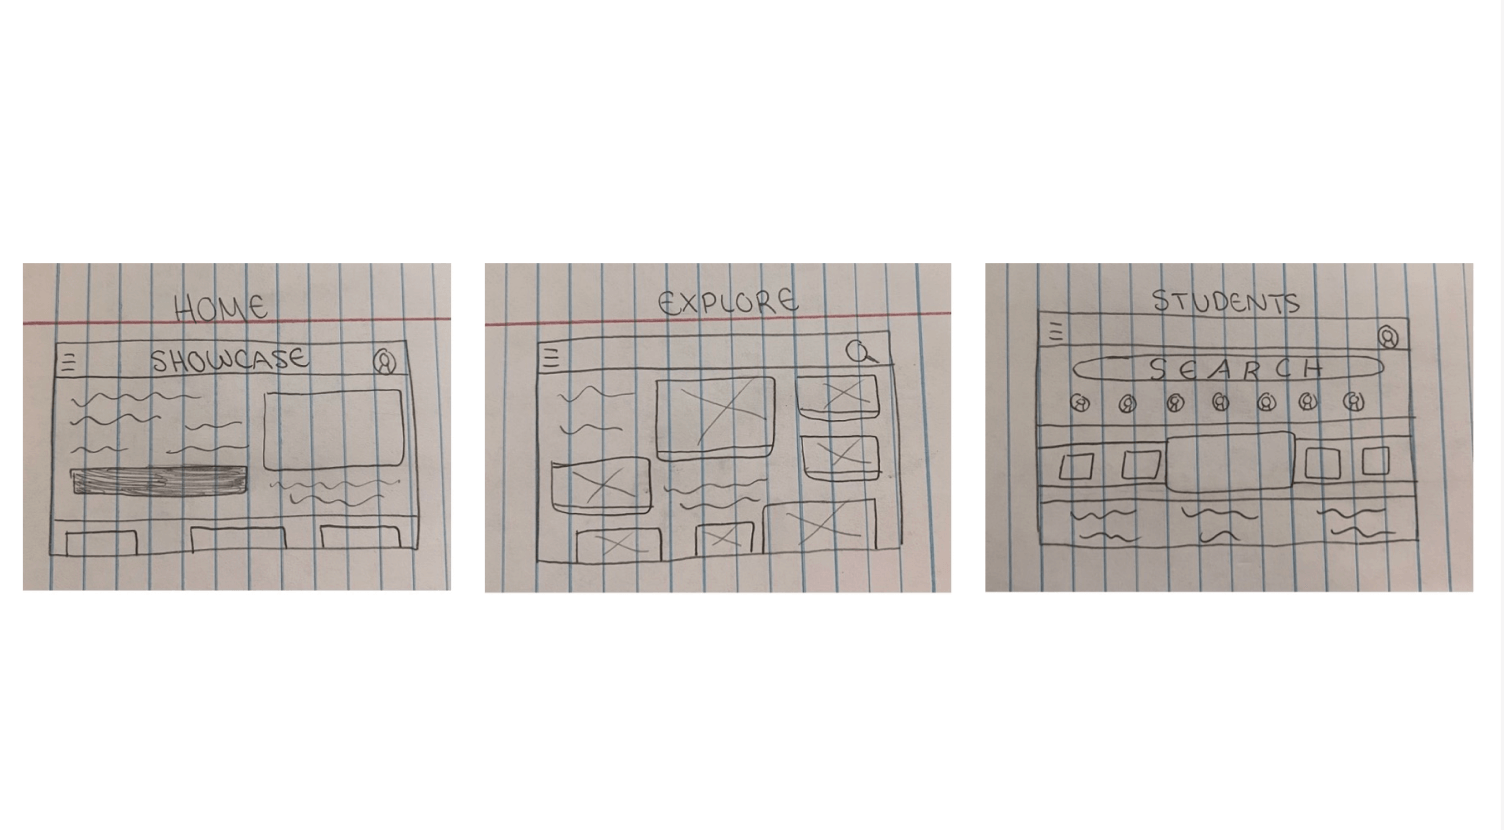 HOME
SHOWCASE
EXPLORE
STUDENTS
SEARCH